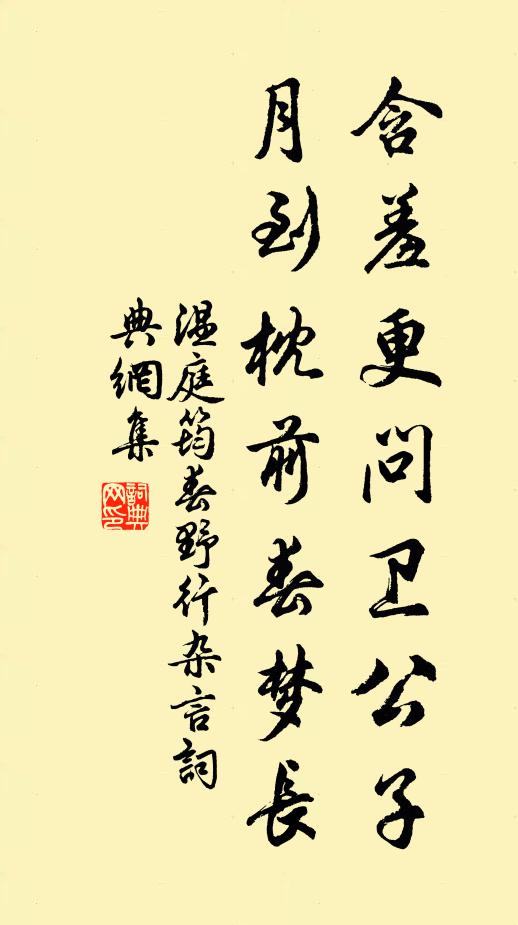 含羞更问卫公子
月到枕前春梦長
温庭筠春野行杂言詞
典網集
詞典
网印